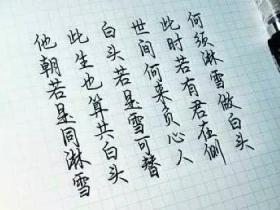 他朝若是同淋雪
此生也算共白头
白头若是雪可替
世间何来负心人
此时若有君在侧
何须淋雪做白头